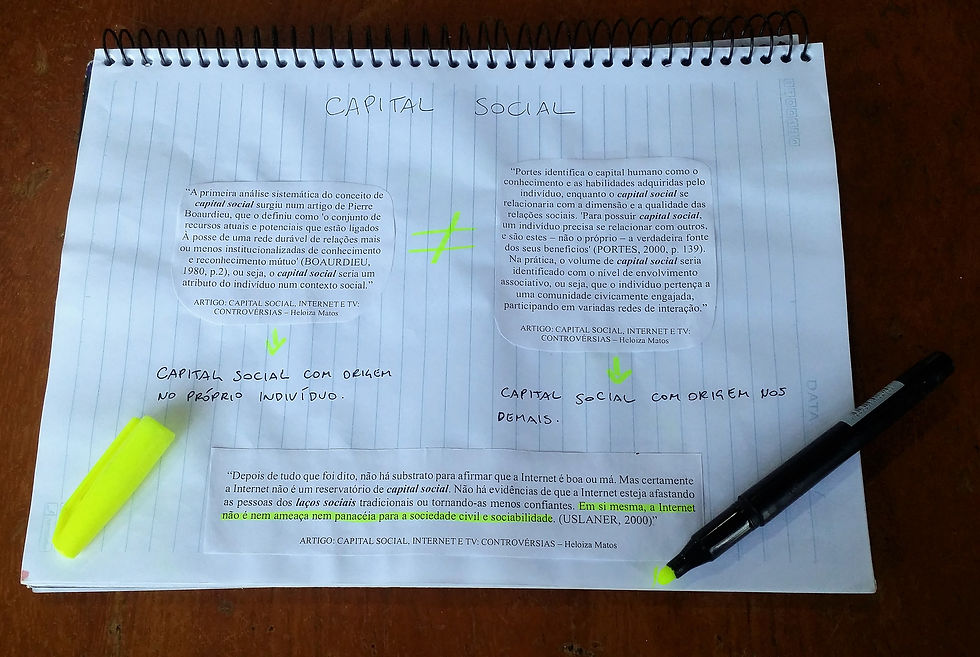 CAPITAL SOCIAL
“A primeira análise sistemática do conceito de
capital social surgiu num artigo de Pierre
Boaurdieu, que o definiu como 'o conjunto de
recursos atuais e potenciais que estão ligados
À posse de uma rede durável de relações mais
ou menos institucionalizadas de conhecimento
e reconhecimento mútuo' (BOAURDIEU,
1980, p.2), ou seja, o capital social seria um
atributo do indivíduo num contexto social.”
ARTIGO: CAPITAL SOCIAL, INTERNET E TV:
CONTROVÉRSIAS – Heloiza Matos
CAPITAL SOCIAL COM ORIGEM
NO PRÓPRIO INDIVÍDUO.
≠
“Portes identifica o capital humano como o
conhecimento e as habilidades adquiridas pelo
indivíduo, enquanto o capital social se
relacionaria com a dimensão e a qualidade das
relações sociais. 'Para possuir capital social,
um indivíduo precisa se relacionar com outros,
e são estes – não o próprio – a verdadeira fonte
dos seus benefícios' (PORTES, 2000, p. 139).
Na prática, o volume de capital social seria
identificado com o nível de envolvimento
associativo, ou seja, que o indivíduo pertença a
uma comunidade civicamente engajada,
participando em variadas redes de interação.”
ARTIGO: CAPITAL SOCIAL, INTERNET E TV:
CONTROVÉRSIAS – Heloiza Matos
CAPITAL SOCIAL COM ORIGEM NOS
DEMAIS.
“Depois de tudo que foi dito, não há substrato para afirmar que a Internet é boa ou má. Mas certamente
a Internet não é um reservatório de capital social. Não há evidências de que a Internet esteja afastando
as pessoas dos laços sociais tradicionais ou tornando-as menos confiantes. Em si mesma, a Internet
não é nem ameaça nem panacéia para a sociedade civil e sociabilidade. (USLANER, 2000)”
ARTIGO: CAPITAL SOCIAL, INTERNET E TV: CONTROVÉRSIAS – Heloiza Matos
DATA